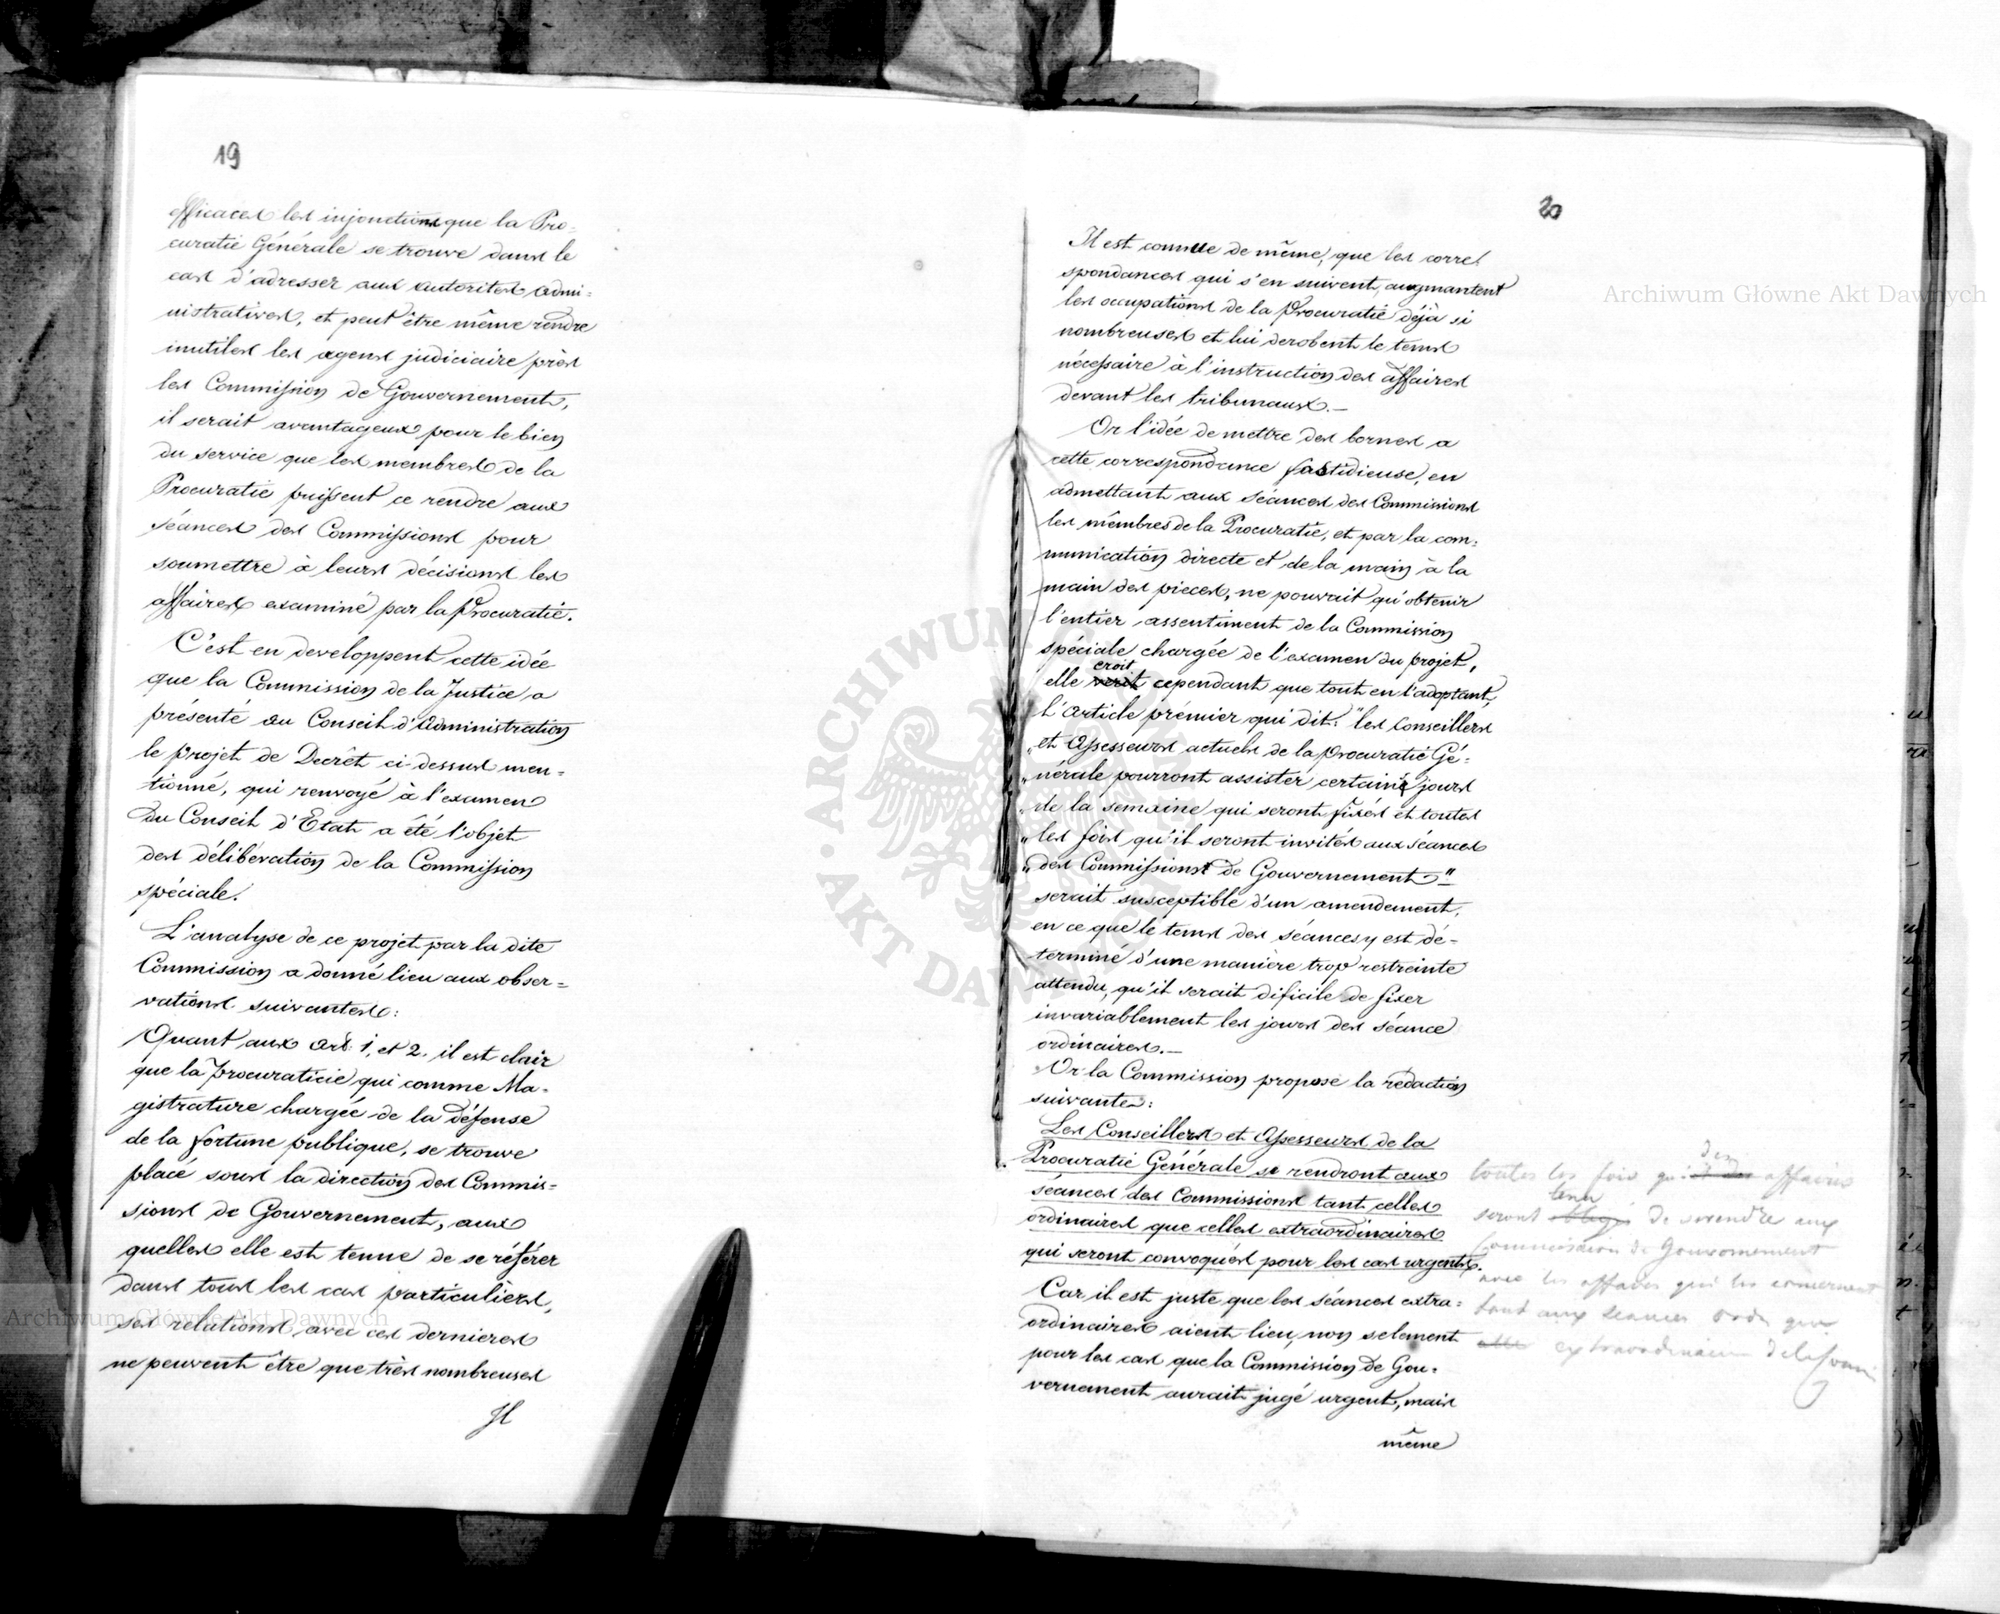 19
efficaces les injonctions que la Pro-
curatie Générale se trouve dans le
cas d'adresser aux autorités admi-
nistratives, et peut être même rendre
inutiles les agens judiciaire près
les Commission de Gouvernement,
il serait avantageux pour le bien
du service que les membres de la
Procuratie puissent ce rendre aux
séances des Commissions pour
soumettre à leurs décisions les
affaires examiné par la Procuratie.
C'est en developpent cette idée
que la Commission de la Justice, a
présenté au Conseil d'Administration
le projet de Decrêt ci-dessus men-
tionné, qui renvoyé à l'examen
du Conseil d'Etat a été l'objet
des délibération de la Commission
spéciale.
L'analyse de ce projet par la dite
Commission a donné lieu aux obser-
vations suivantes:
Quant aux Art: 1, et 2. il est clair
que la Procuraticie qui comme Ma-
gistrature chargée de la défense
de la fortune publique, se trouve
placé sous la direction des Commis-
sions de Gouvernement, aux
quelles elle est tenue de se référer
dans tous les cas particuliers,
ses relations avec ces dernieres
ne peuvent être que très nombreuses
Il
20
Il est connue de même, que les corre-
spondances qui s'en suivent, augmantent
les occupations de la Procuratie déjà si
nombreuses et lui derobent le tems
nécessaire à l'instruction des affaires
devant les tribunaux.—
Or l'idée de mettre des bornes a
cette correspondance fastidieuse, en
admettant aux séances des Commissions
les mêmbres de la Procuratie, et par la com-
munication directe et de la main à la
main des pieces, ne pouvait qu'obtenir
l'entier assentiment de la Commission
spéciale chargée de l'examen du projet,
croit
elle cependant que tout en l'adoptant,
l'Article prémier qui dit: "les Conseillers
"et Assesseurs actuels de la Procuratie Gé-
"nérale pourront assister certains jours
"de la semaine qui seront fixés et toutes
"les fois qu'il seront invités aux séances
"des Commissions de Gouvernement"
serait susceptible d'un amendement,
en ce que le tems des séances y est dé-
terminé d'une manière trop restreinte
attendu, qu'il serait dificile de fixer
invariablement les jours des séance
ordinaires.—
Or la Commission propose la rédaction
suivante:
Les Conseillers et Assesseurs de la
Procuratie Générale se rendront aux
séances des Commissions tant celles
ordinaires que celles extraordinaires
qui seront convoqués pour les cas urgents.
Car il est juste que les séances extra-
ordinaires aient lieu, non selement
pour les cas que la Commission de Gou-
vernement aurait jugé urgent, mais
même
des
toutes les fois qui affaires
tenu
seront obligés de se rendre aux
Commission de Gouvernement
avec les affaires qui les concernent
tant aux seances
extraordinaires
Archiwum Główne Akt Dawnych
Archiwum Główne Akt Dawnych
ARCHIWUM GŁÓWNE AKT DAWNYCH